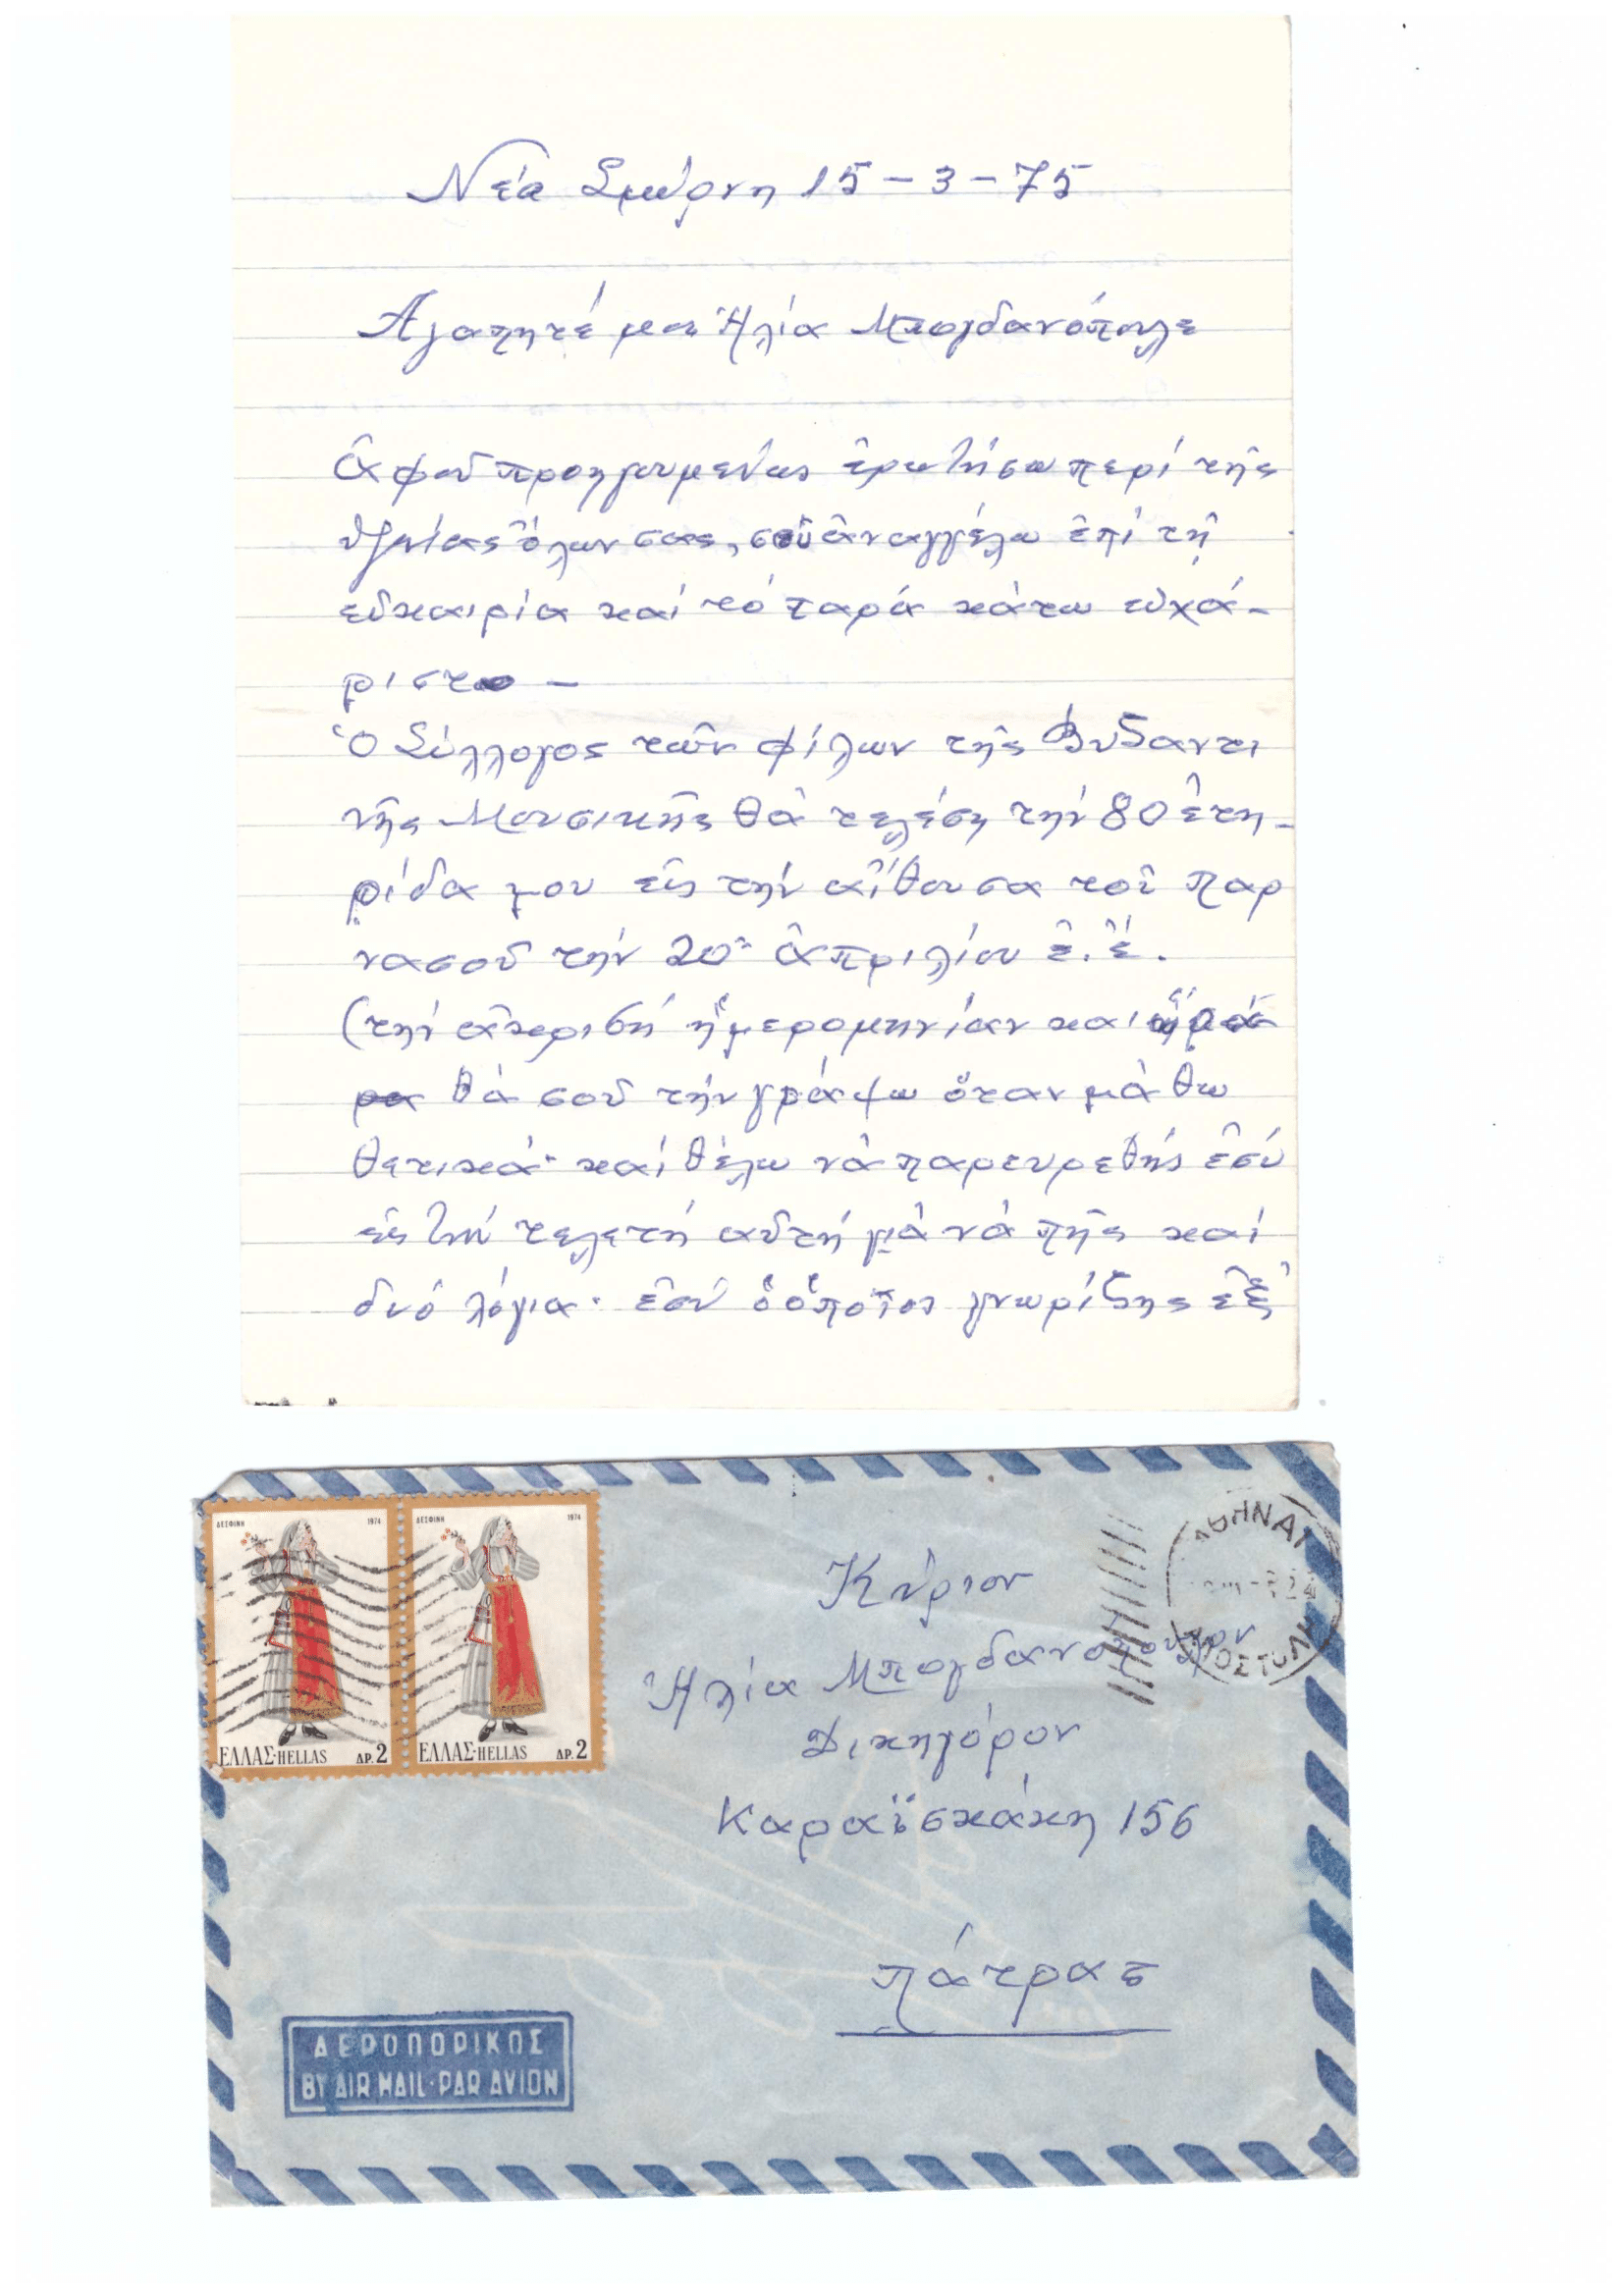 Νέα Σμύρνη 15-3-75
Ἀγαπητέ μου Ἠλία Μπογδανόπουλε
Ἀφοῦ προηγουμένως ἐρωτήσω περί τῆς
ὑγείας ὅλων σας, σοῦ ἀναγγέλω ἐπί τῇ
εὐκαιρία καί τό παρά κάτω εὐχά-
ριστο -
Ὁ Σύλλογος τῶν φίλων τῆς Βυζαντι
νῆς Μουσικῆς θά τελέση τήν 80ετη-
ρίδα μου εἰς τήν αἴθουσα τοῦ Παρ
νασοῦ τήν 20ην Ἀπριλίου ἐ.ἔ.
(τήν ἀκριβή ἡμερομηνίαν καί
θά σοῦ τήν γράψω ὅταν μάθω
θετικά· καί θέλω νά παρευρεθής ἐσύ
εἰς τήν τελετή αὐτή γιά νά πῆς καί
δυό λόγια· ἐσύ ὁ ὁποῖος γνωρίζης ἐξ
ΔΕΣΦΙΝΗ 1974
ΔΕΣΦΙΝΗ 1974
ΕΛΛΑΣ·HELLAS ΔΡ.2
ΕΛΛΑΣ·HELLAS ΔΡ.2
ΑΘΗΝΑΙ
ΑΠΟΣΤΟΛΗ
Κύριον
Ἠλία Μπογδανόπουλον
Δικηγόρον
Καραϊσκάκη 156
Πάτρας
ΑΕΡΟΠΟΡΙΚΩΣ
BY AIR MAIL·PAR AVION